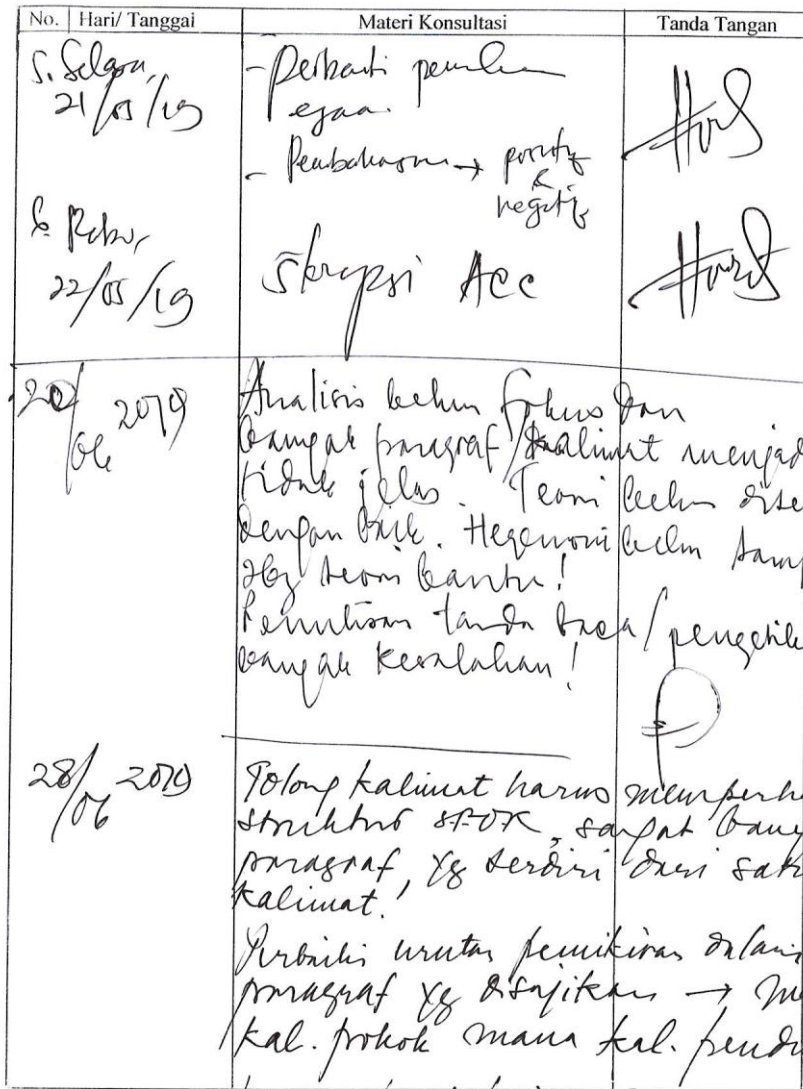 No. Hari/ Tanggal Materi Konsultasi Tanda Tangan
5. Selasa, - Perbaiki
21/05/19 ejaan.
- Pembahasan → positif
&
negatif
6. Rabu,
22/05/19 Skripsi ACC
20/06 2019 Analisis belum fokus dan
banyak paragraf/kalimat menjad
tidak jelas. Teori belum dise
dengan baik. Hegemoni belum tamp
sbg teori bantu!
Penulisan tanda baca/pengetik
banyak kesalahan!
28/06 2019 Tolong kalimat harus memperha
struktur SPOK, sangat bany
paragraf, yg terdiri dari satu
kalimat!
Perbaiki urutan pemikiran dalam
paragraf yg disajikan → m
kal. pokok mana kal. pendu